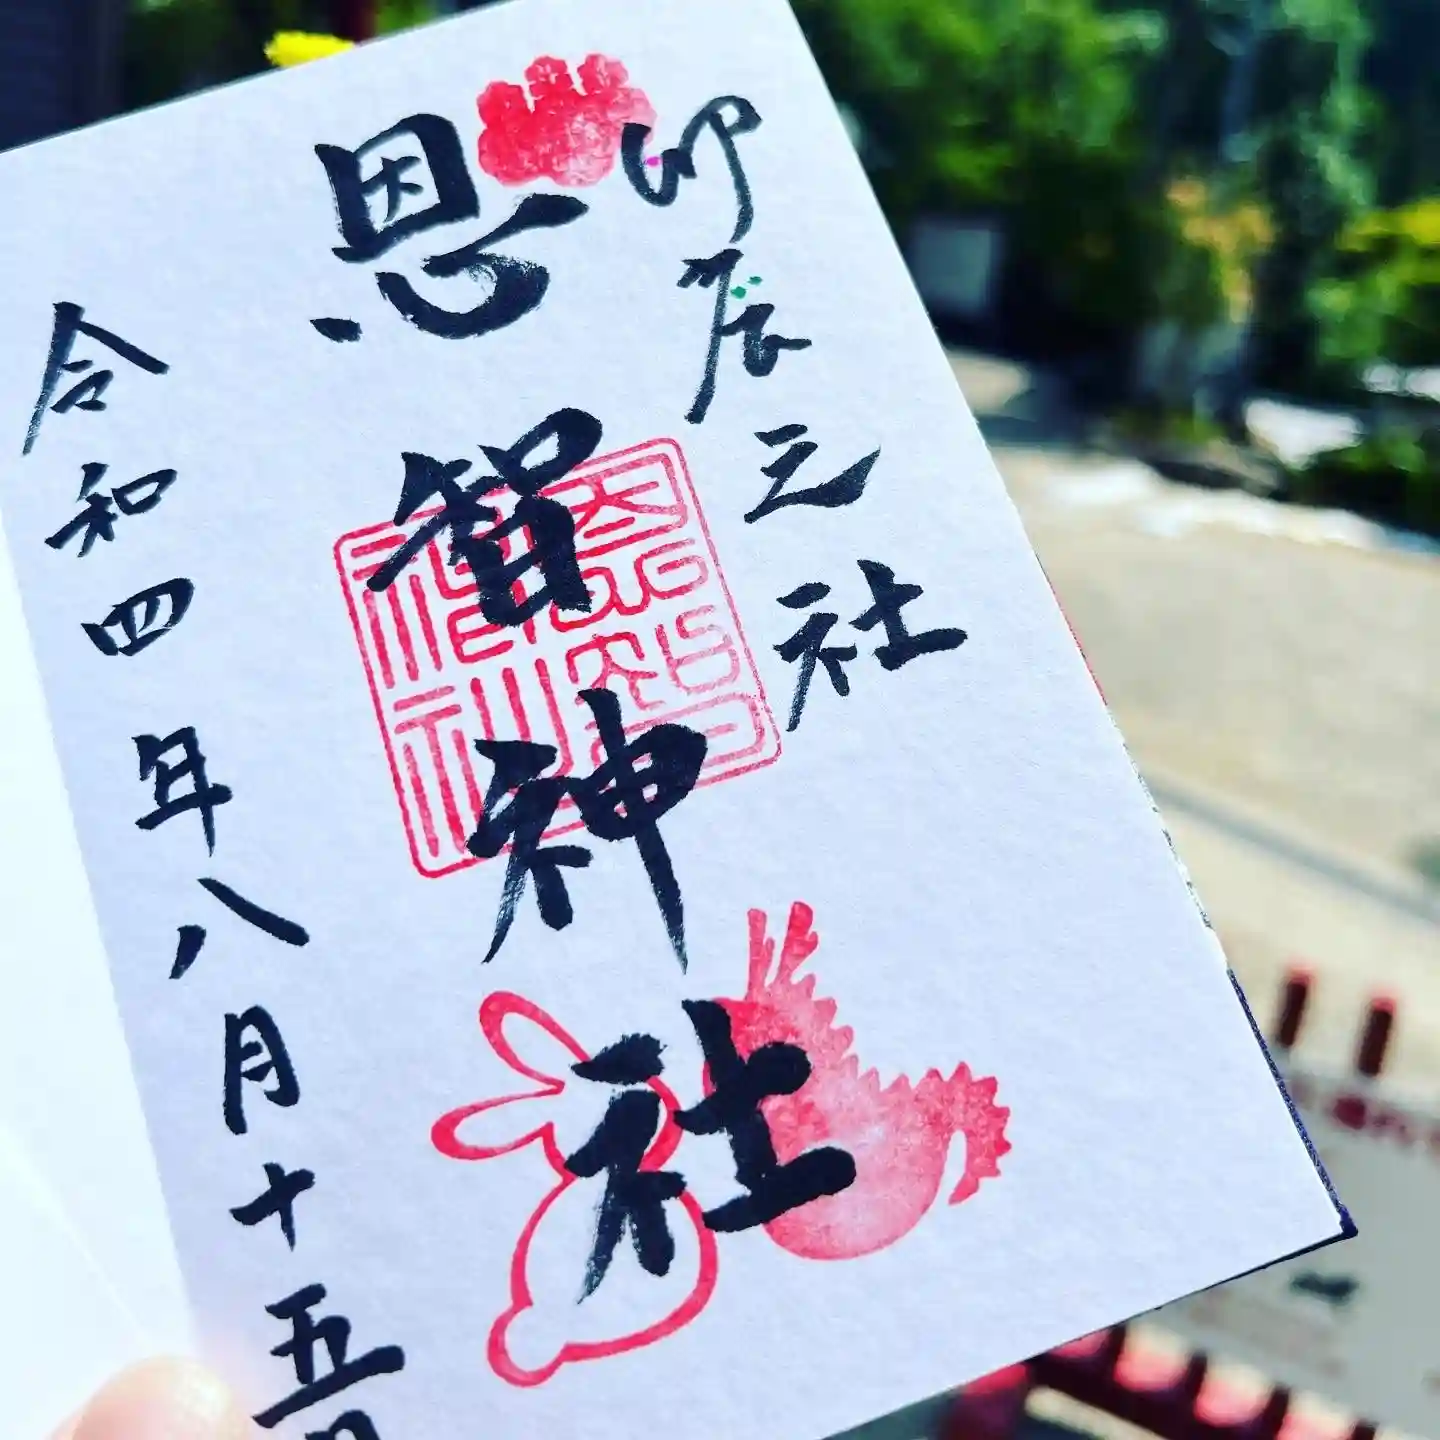 卯辰之社
恩智神社
令和四年八月十五日